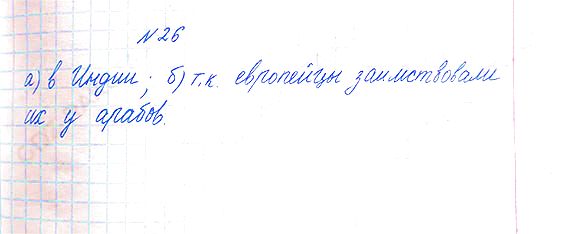 №26
а) в Индии; б) т.к. европейцы заимствовали
их у арабов.